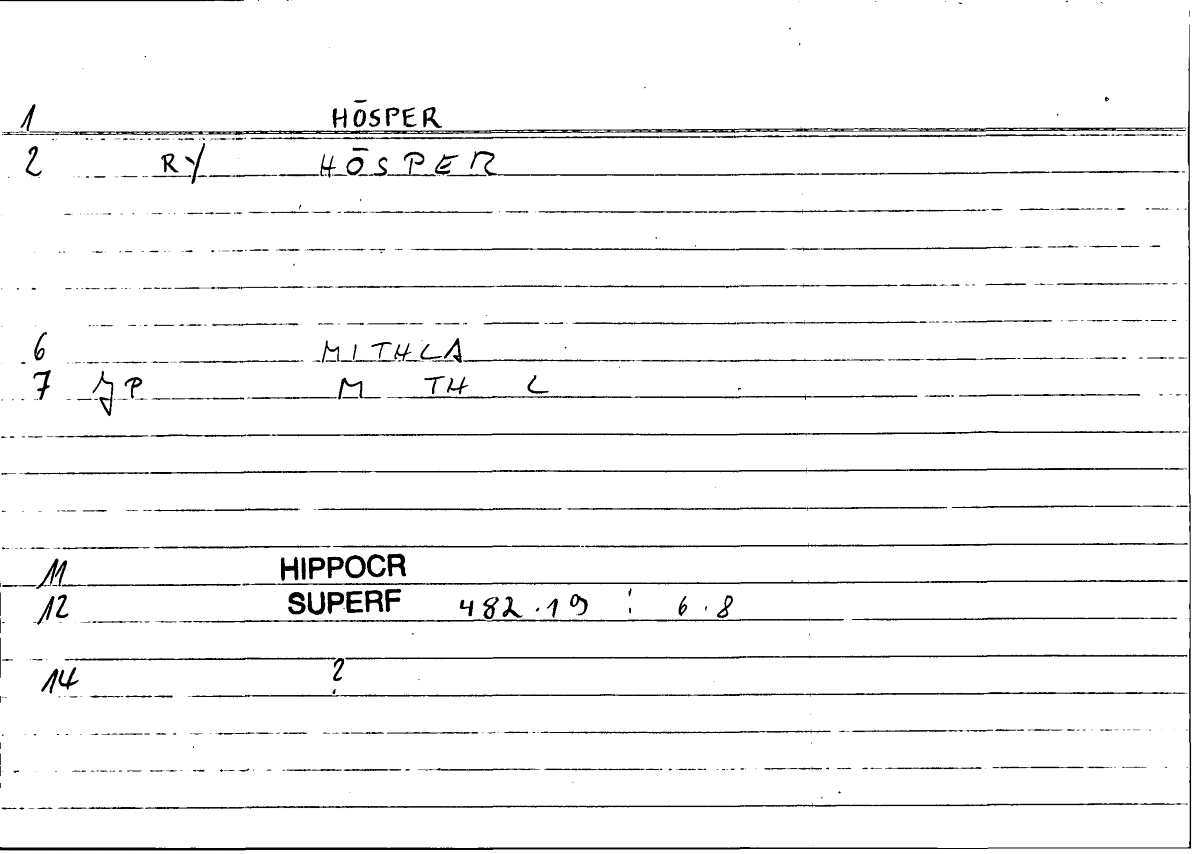 1 HŌSPER
2 RY HŌSPER
6 MITHLA
7 P M TH L
11 HIPPOCR
12 SUPERF 482.19 : 6.8
14 ?